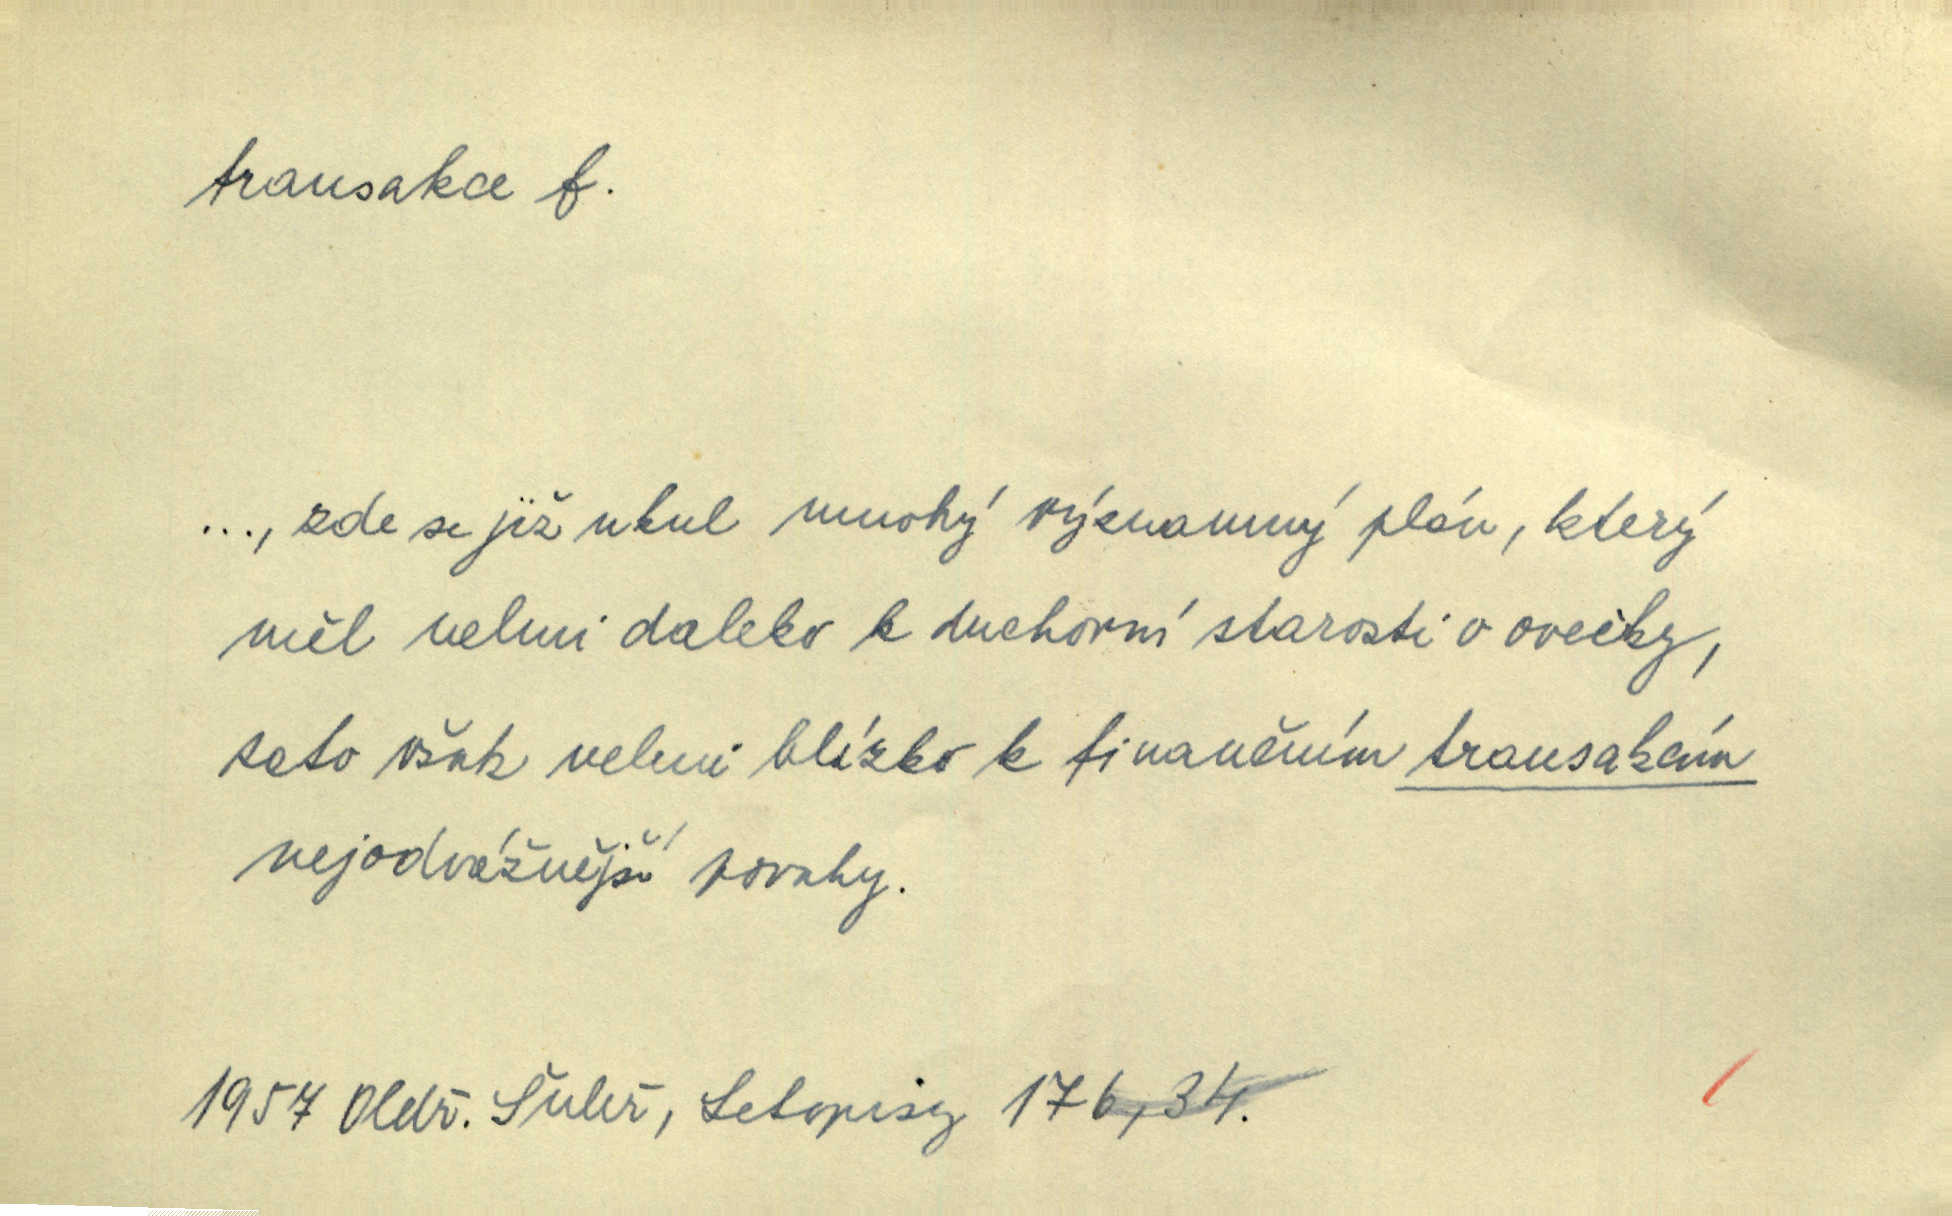 transakce f.
..., zde se již ukul mnohý významný plán, který
měl velmi daleko k duchovní starosti o ovečky,
zato však velmi blízko k finančním transakcím
nejodvážnější povahy.
1957 Oldř. Šuleř, Letopisy 176, 34.